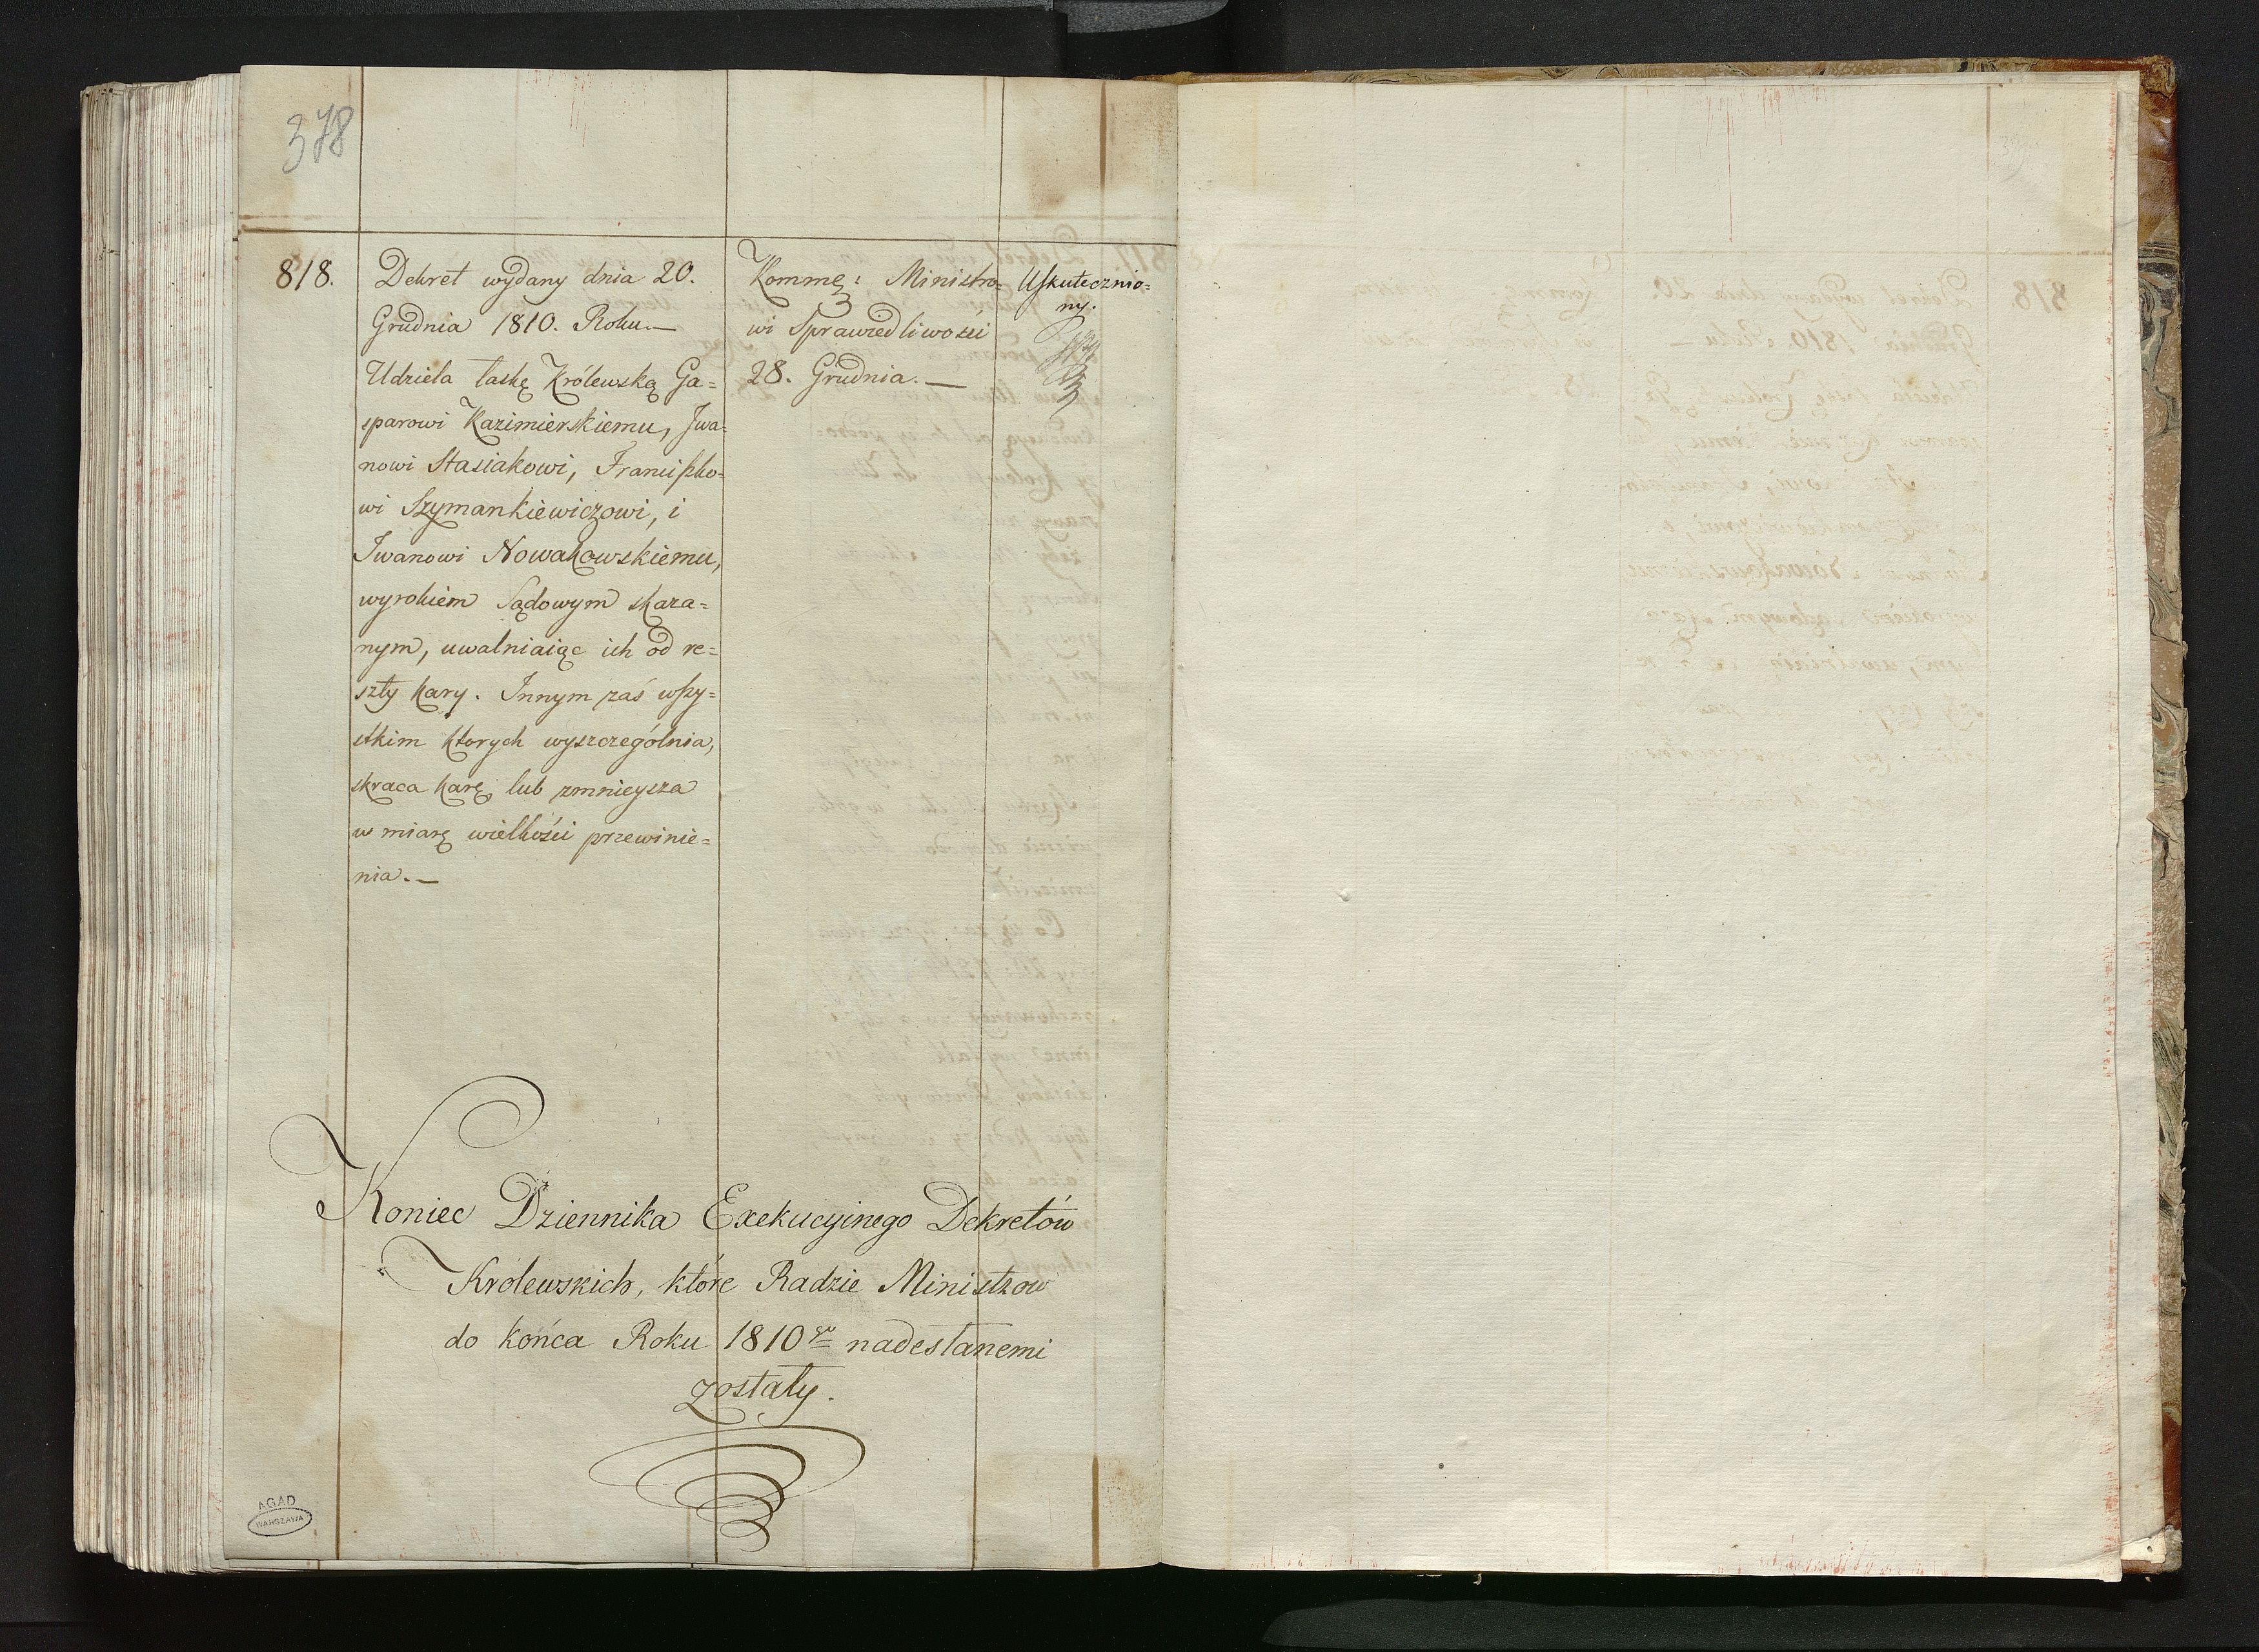 378
818.
Dekret wydany dnia 20.
Grudnia 1810. Roku.—
Udziela łaskę Królewską Ga=
sparowi Kazimierskiemu, Iwa=
nowi Stasiakowi, Franciszko=
wi Szymankiewiczowi, i
Iwanowi Nowakowskiemu,
wyrokiem Sądowym skaza=
nym, uwalniaiąc ich od re=
szty kary. Innym zaś wszy=
stkim ktorych wyszczególnia,
skraca karę, lub zmnieysza
w miarę wielkości przewinie=
nia.—
Ministro=
wi Sprawiedliwości
28. Grudnia.—
Uskutecznio=
ny.
Koniec Dziennika Exekucyinego Dekretów
Krolewskich, które Radzie Ministrow
do końca Roku 1810go nadesłanemi
zostały.
AGAD
WARSZAWA